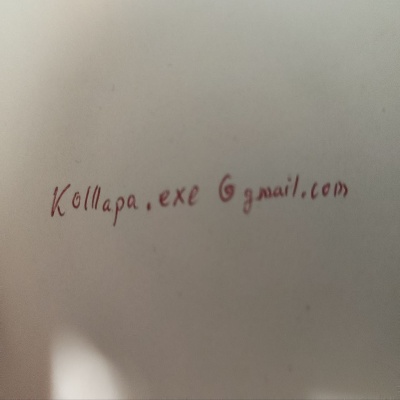 Kolllapa.exe @gmail.com